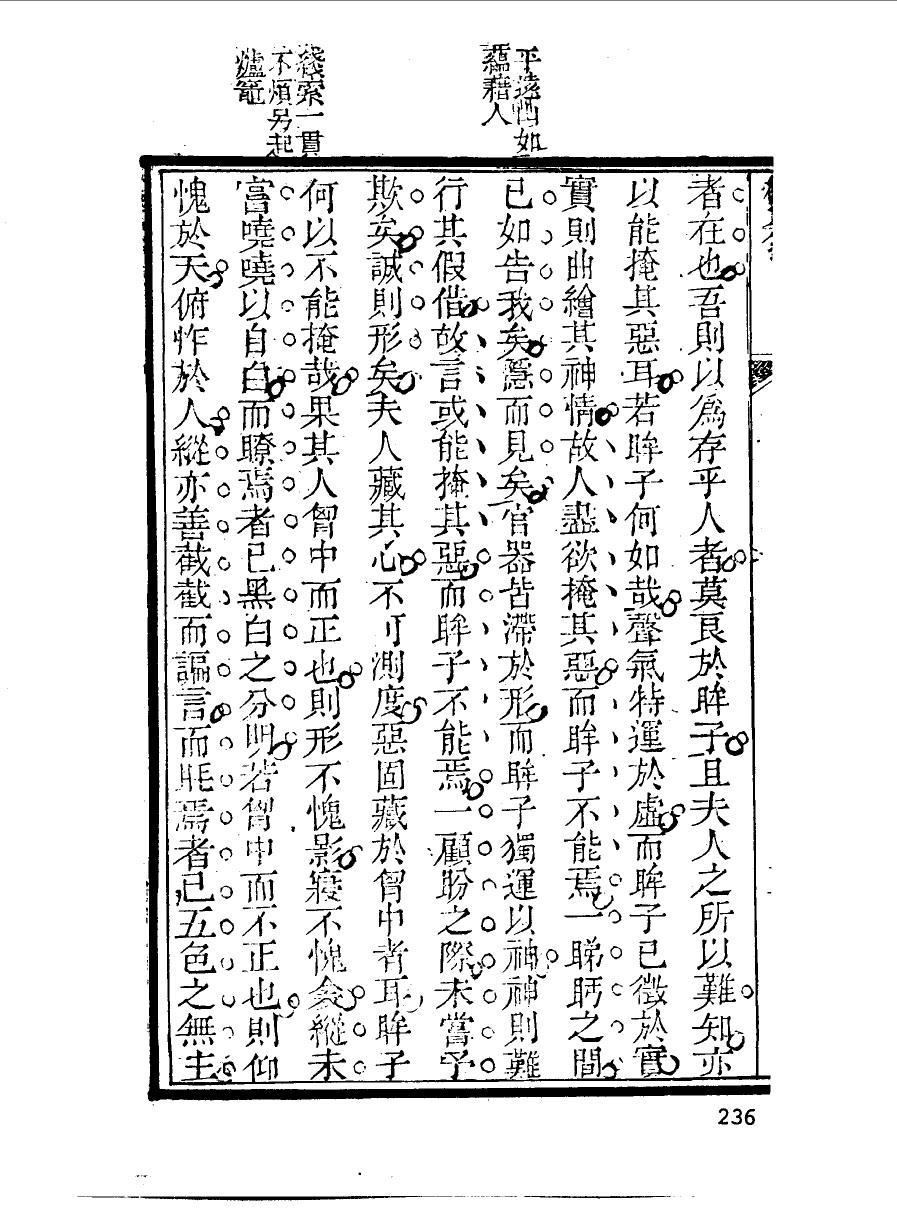 平遠四如
蘊藉人
綫索一貫
不煩另起
爐竈
者在也吾則以爲存乎人者莫良於眸子且夫人之所以難知亦
以能掩其惡耳若眸子何如哉聲氣特運於虛而眸子已徵於實
實則曲繪其神情故人盡欲掩其惡而眸子不能焉一睇眄之間
已如告我矣隱而見矣官器皆滯於形而眸子獨運以神神則難
行其假借故言或能掩其惡而眸子不能焉一顧盼之際未嘗予
欺矣誠則形矣夫人藏其心不可測度惡固藏於胷中者耳眸子
何以不能掩哉果其人胷中而正也則形不愧影寢不愧衾縱未
嘗嘵嘵以自白而瞭焉者已黑白之分明若胷中而不正也則仰
愧於天俯怍於人縱亦善截截而諞言而眊焉者已五色之無主
236